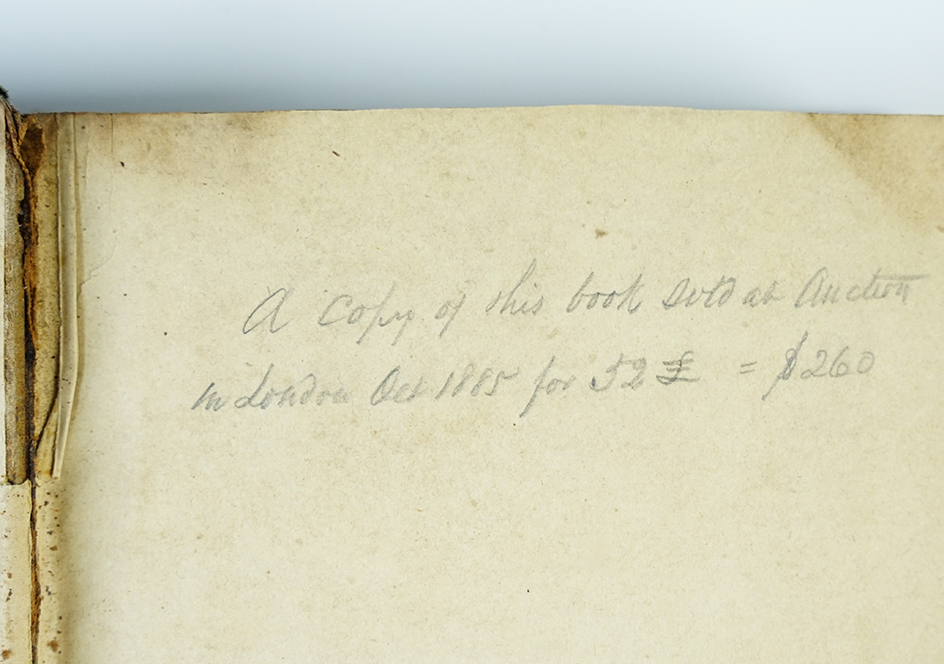 A copy of this book sold at Auction
in London Oct 1885 for 52 £ = $260